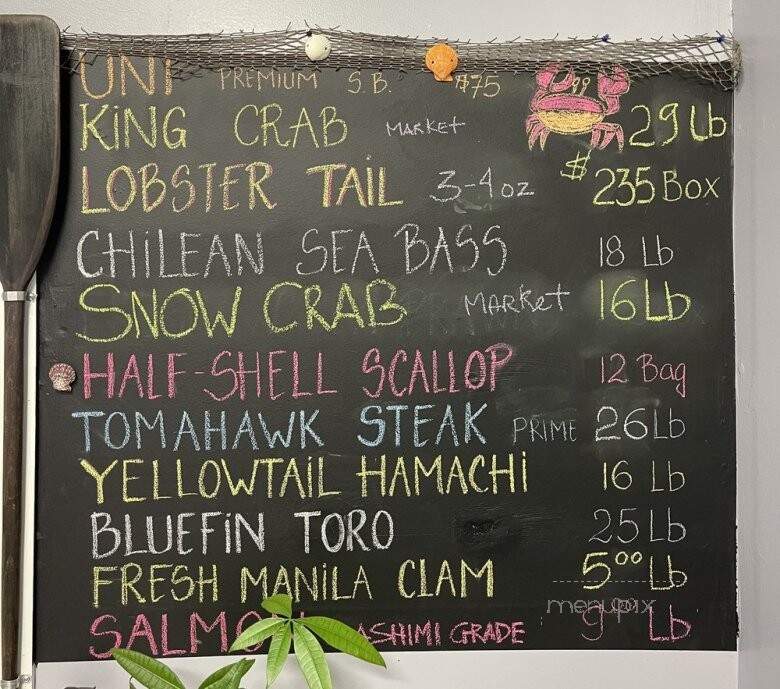 UNI PREMIUM S.B. $75
KING CRAB MARKET 29 Lb
LOBSTER TAIL 3-4 oz $235 Box
CHILEAN SEA BASS 18 Lb
SNOW CRAB MARKET 16 Lb
HALF-SHELL SCALLOP 12 Bag
TOMAHAWK STEAK PRIME 26 Lb
YELLOWTAIL HAMACHI 16 Lb
BLUEFIN TORO 25 Lb
FRESH MANILA CLAM 5⁰⁰ Lb
menupix
GRADE Lb